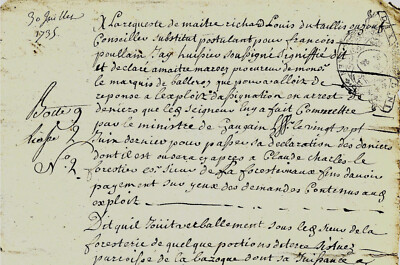 30 Juillet
1735.
A La requeste de maitre richard Louis du taillis
Conseiller substitut postulant pour françois
poullain Jay huissier soussigné signiffié dit
et declaré amaitre marcey procureur de monsr
le marquis de balleroy que pour valloir de
reponse a lexploit dassignation en arrest de
deniers que led seigneur luy a fait Commettre
par le ministre de le vingt sept
Juin dernier pour passer sa declaration des deniers
dont il est ou sera cy apres a Claude Charles le
forestier sieur de la foresterie aux fins davoir
payement sur yeux des demandes Contenus aud
exploit
Dit quil Jouit verballement sous led sieur de la
foresterie de quelque portions de terre situez
parroisse de la bazoque dont sa Juissance a
Botte 9
liasse 2
No. 2